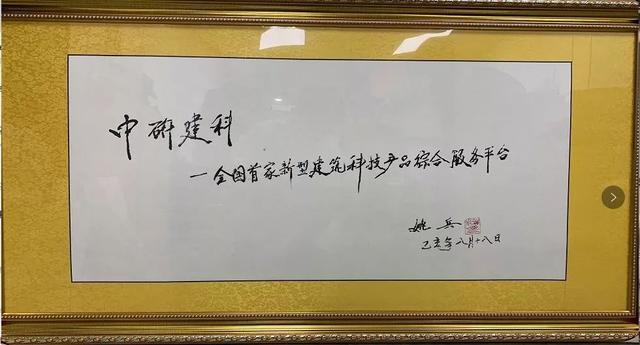 中研建科
一全国首家新型建筑科技产品综合服务平台
姚兵
己亥年八月十八日